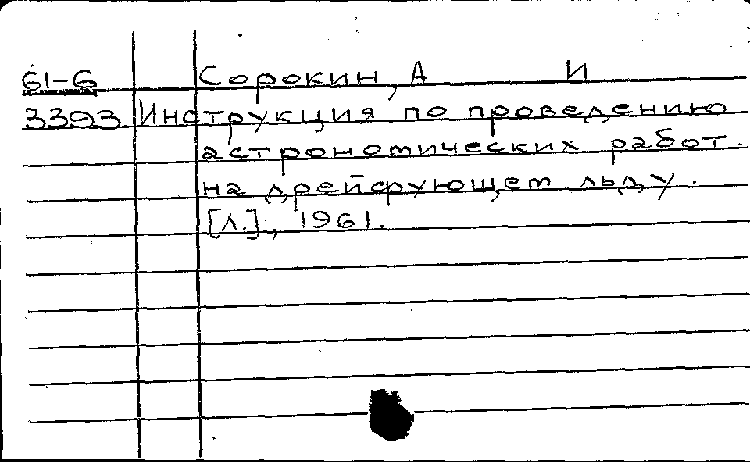 61-6 Сорокин, А И
3393 Инструкция по проведению
астрономических работ
на дрейфующем льду.
[Л.], 1961.